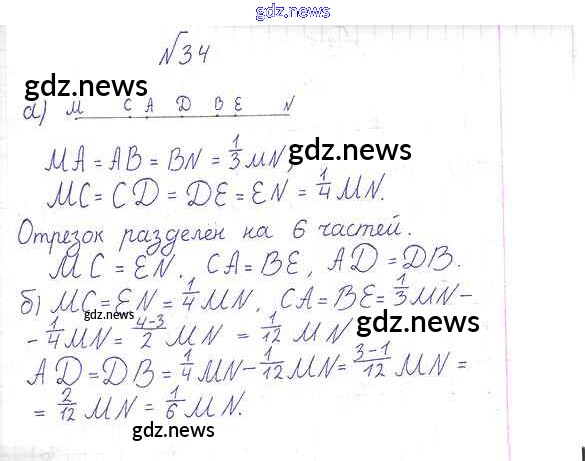 gdz.news
№34
gdz.news
а) M C A D B E N
gdz.news
MA = AB = BN = 1/3 MN,
MC = CD = DE = EN = 1/4 MN.
Отрезок разделен на 6 частей.
MC = EN, CA = BE, AD = DB.
б) MC = EN = 1/4 MN, CA = BE = 1/3 MN -
gdz.news
- 1/4 MN = 4-3/2 MN = 1/12 MN
gdz.news
AD = DB = 1/4 MN - 1/12 MN = 3-1/12 MN =
= 2/12 MN = 1/6 MN.
gdz.news